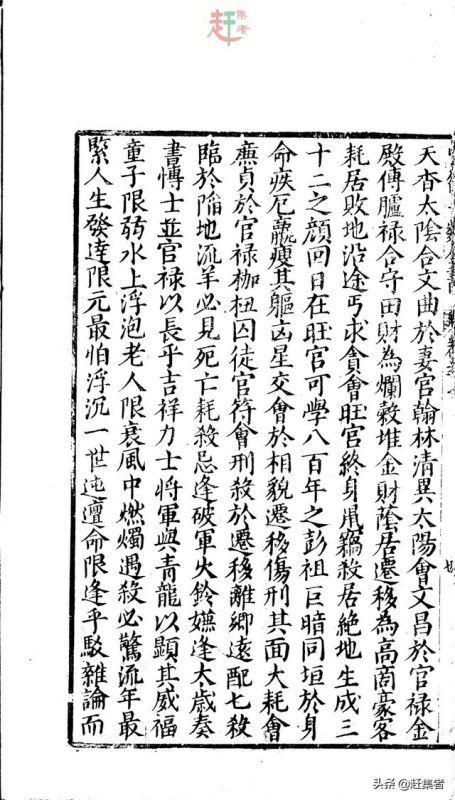 集者
赶
天杳太陰合文曲於妻宮翰林清異太陽會文昌於官禄金
殿傳臚禄合守田財為爛穀堆金財蔭居遷移為高商豪客
耗居敗地沿途丐求貪會旺官終身鼠竊殺居絶地生成三
十二之顔回日在旺官可學八百年之彭祖巨暗同垣於身
命疾厄羸瘦其軀凶星交會於相貌遷移傷刑其面大耗會
廉貞於官禄枷杻囚徒官符會刑殺於遷移離鄉遠配七殺
臨於陥地流羊必見死亡耗殺忌逢破軍火鈴嫌逢太歲奏
書愽士並官禄以長乎吉祥力士將軍與青龍以顕其威福
童子限弱水上浮泡老人限衰風中燃燭遇殺必驚流年最
緊人生發達限元最怕浮沉一世迍邅命限逢乎駁雜論而
头条 @赶集者